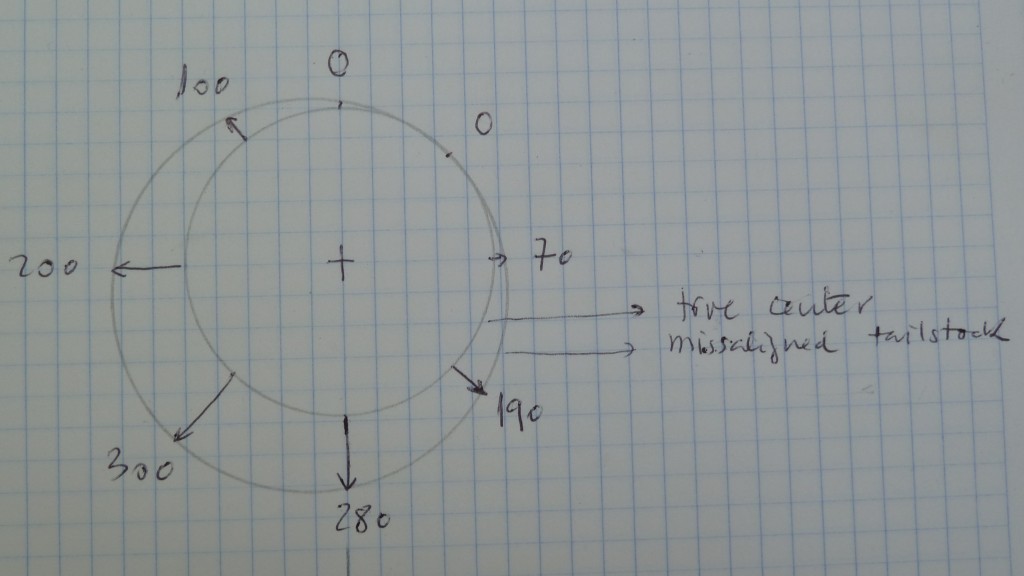 0
100
0
200
70
true center
missaligned tailstock
190
300
280